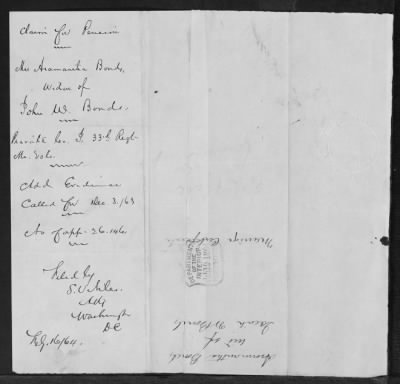 Claim for Pension
Mrs Aramantha Bonds,
Widow of
John W. Bonds.
Private Co. I, 33d Regt
Mo. Vols.
Add Evidence
Called for Dec. 3/63
No of app- 26.146
Filed by
Atty
Washington
DC
Marriage Certificate
DEPARTMENT
OF THE
INTERIOR
Aramantha Bonds
wid of
Bonds